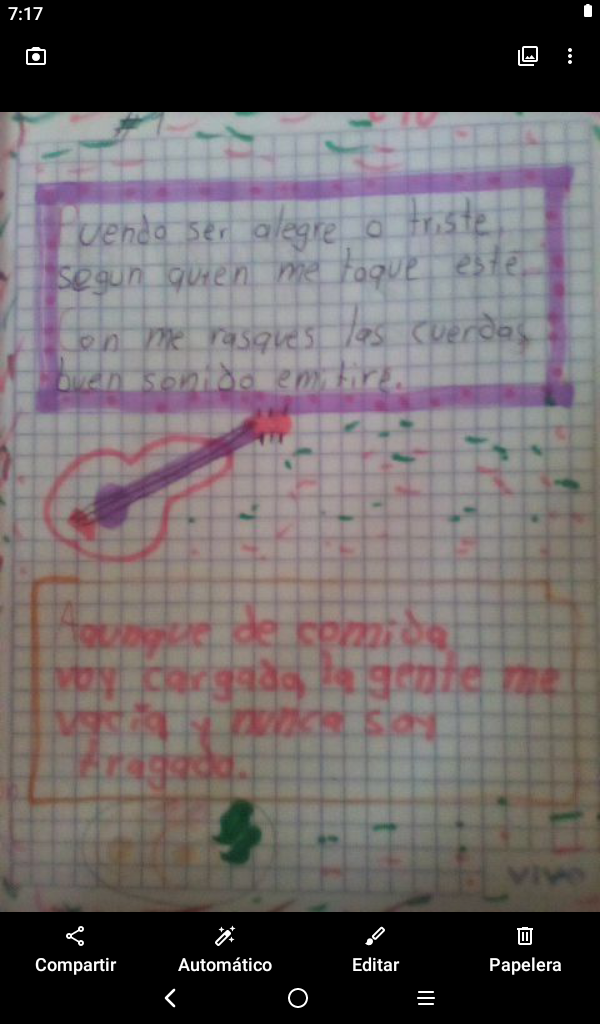 7:17
#1
Puendo ser alegre o triste,
segun quien me toque esté.
Con me rasques las cuerdas
buen sonido emitire.
Aaunque de comida
voy cargada, la gente me
vacia y nunca soy
tragado.
Compartir Automático Editar Papelera